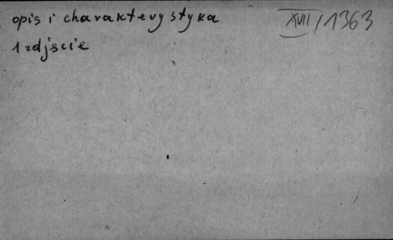 opis i charakterystyka XVII/1363
1 zdjęcie